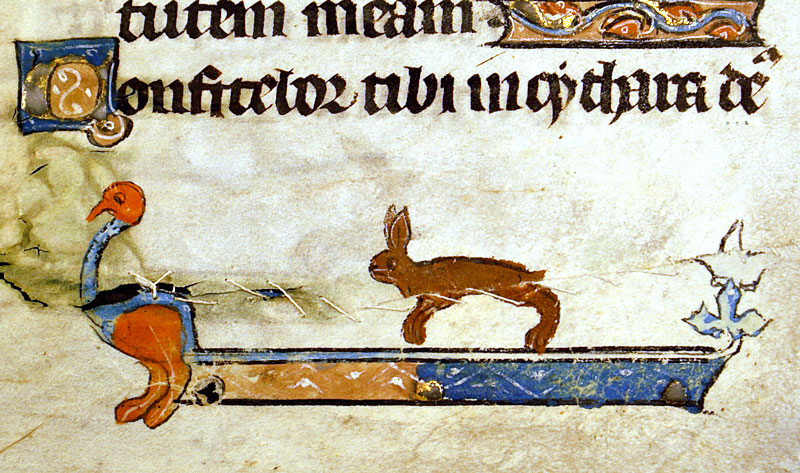 tutem meam
Confitebor tibi in cythara deꝰ